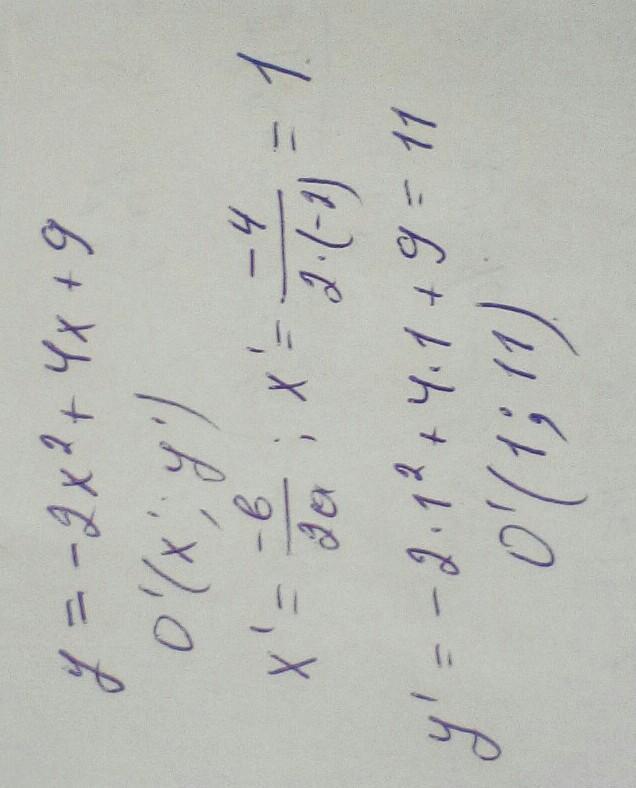 y = -2x² + 4x + 9
O'(x'; y')
x' = -b/2a ; x' = -4/2·(-2) = 1.
y' = -2·1² + 4·1 + 9 = 11
O'(1; 11)